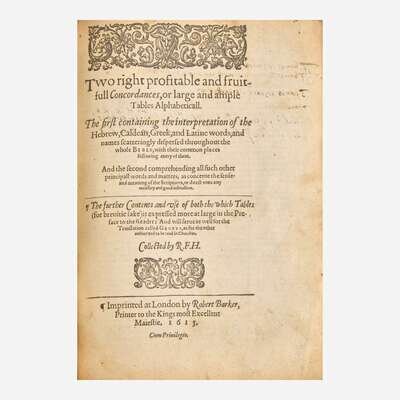 Two right profitable and fruit-
full Concordances, or large and ample
Tables Alphabeticall.
The first containing the interpretation of the
Hebrew, Caldean, Greek, and Latine words, and
names scatteringly dispersed throughout the
whole BIBLE, with their common places
following every of them.
And the second comprehending all such other
principall words and matters, as concerne the sense
and meaning of the Scriptures, or direct unto any
necessary and good instruction.
¶ The further Contents and use of both the which Tables
(for brevitie sake) is expressed more at large in the Pre-
face to the Reader: And will serve as well for the
Translation called GENEVA, as for the other
authorized to be read in Churches.
Collected by R. F. H.
¶ Imprinted at London by Robert Barker,
Printer to the Kings most Excellent
Maiestie. 1615.
Cum Privilegio.